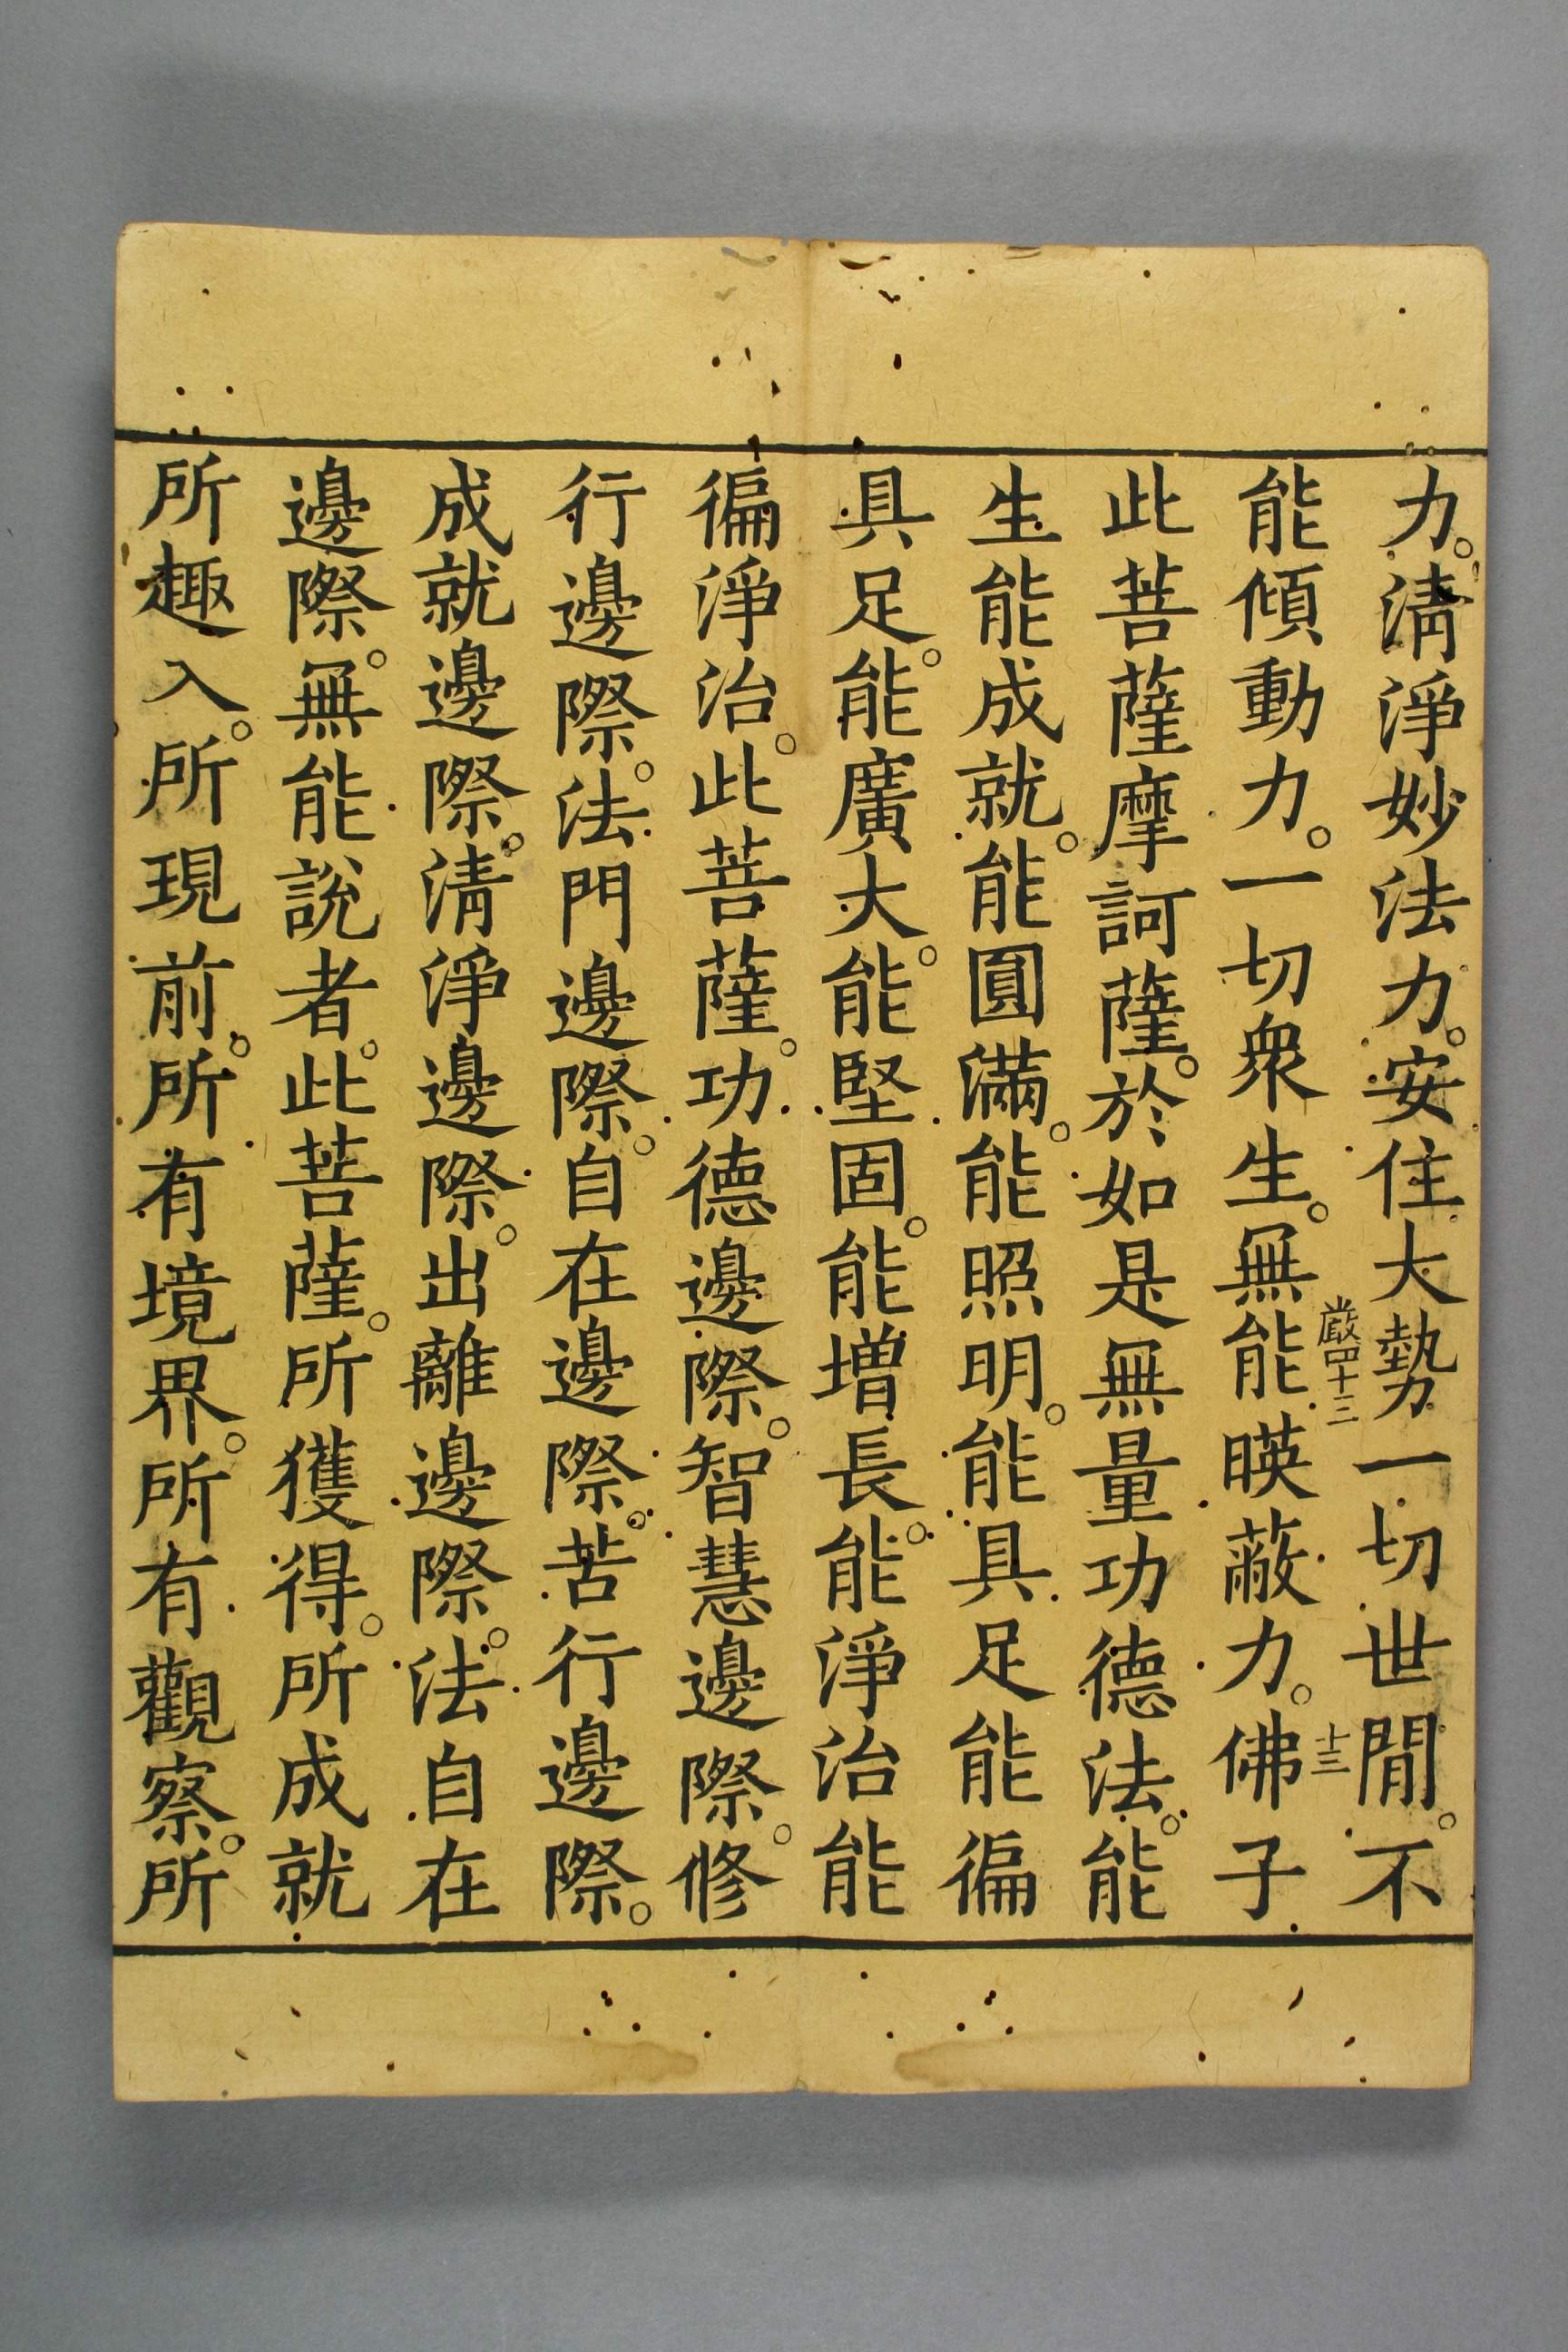 力。清淨妙法力。安住大勢一切世閒。不
嚴四十三
十三
能傾動力。一切衆生。無能暎蔽力。佛子
此菩薩摩訶薩。於如是無量功德法。能
生能成就。能圓滿。能照明。能具足能徧
具足。能廣大。能堅固。能增長。能淨治能
徧淨治。此菩薩。功德邊際。智慧邊際。修
行邊際。法門邊際。自在邊際。苦行邊際。
成就邊際。清淨邊際。出離邊際。法自在
邊際。無能說者。此菩薩。所獲得。所成就
所趣入。所現前。所有境界。所有觀察。所